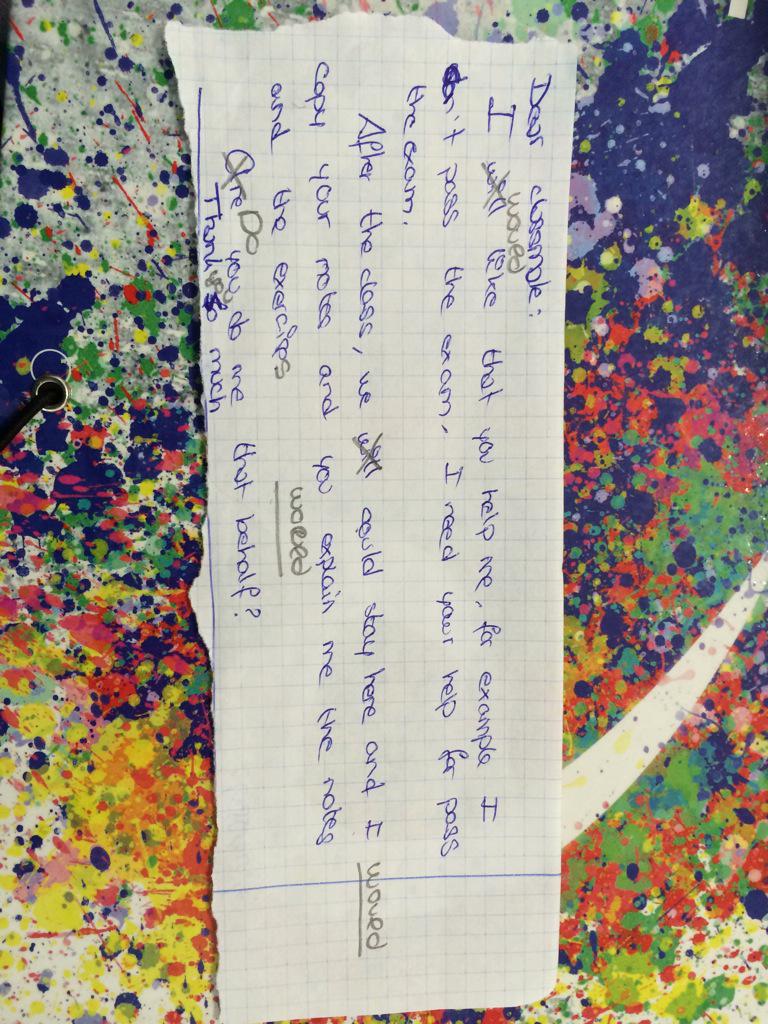 Dear classmate:
I would like that you help me, for example I
don't pass the exam, I need your help for pass
the exam.
After the class, we will could stay here and I would
copy your notes and you would explain me the notes
and the exercises
Are Do you do me that behalf?
Thank you so much